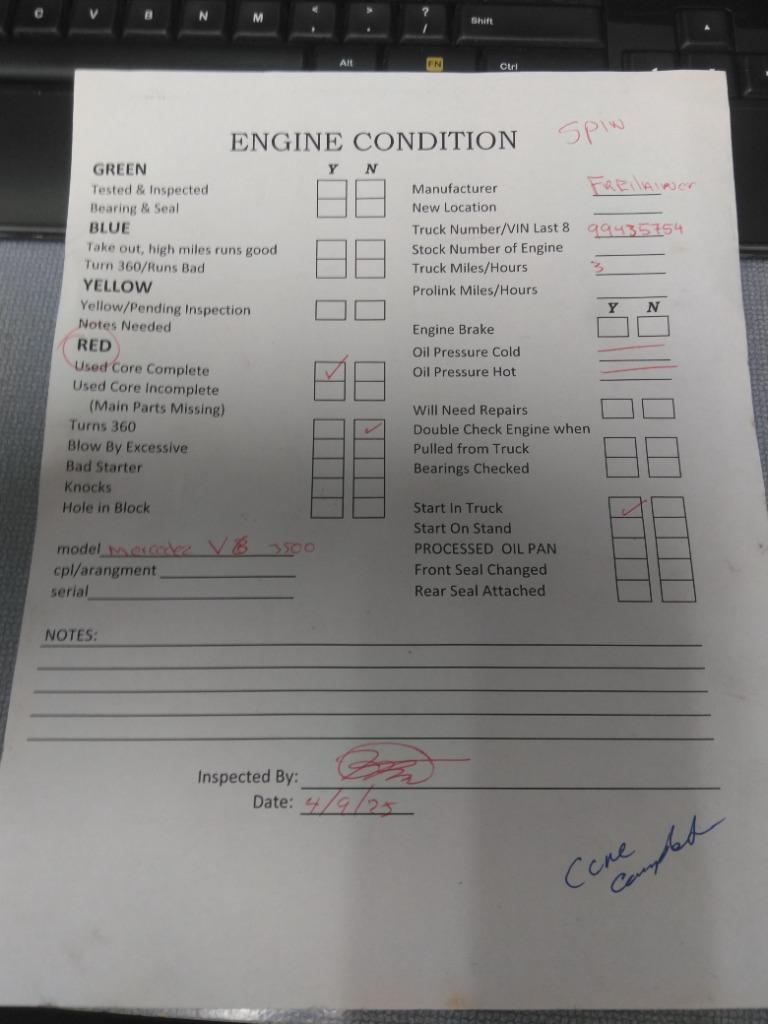 C V B N M < , > . ? / Shift
Alt FN Ctrl
ENGINE CONDITION
SPIN
GREEN Y N
Tested & Inspected
Bearing & Seal
BLUE
Take out, high miles runs good
Turn 360/Runs Bad
YELLOW
Yellow/Pending Inspection
Notes Needed
RED
Used Core Complete ✓
Used Core Incomplete
(Main Parts Missing)
Turns 360 ✓
Blow By Excessive
Bad Starter
Knocks
Hole in Block
model
cpl/arangment
serial
Manufacturer
New Location
Truck Number/VIN Last 8 99435754
Stock Number of Engine
Truck Miles/Hours 3
Prolink Miles/Hours
Y N
Engine Brake
Oil Pressure Cold
Oil Pressure Hot
Will Need Repairs
Double Check Engine when
Pulled from Truck
Bearings Checked
Start In Truck ✓
Start On Stand
PROCESSED OIL PAN
Front Seal Changed
Rear Seal Attached
NOTES:
Inspected By:
Date: 4/9/25